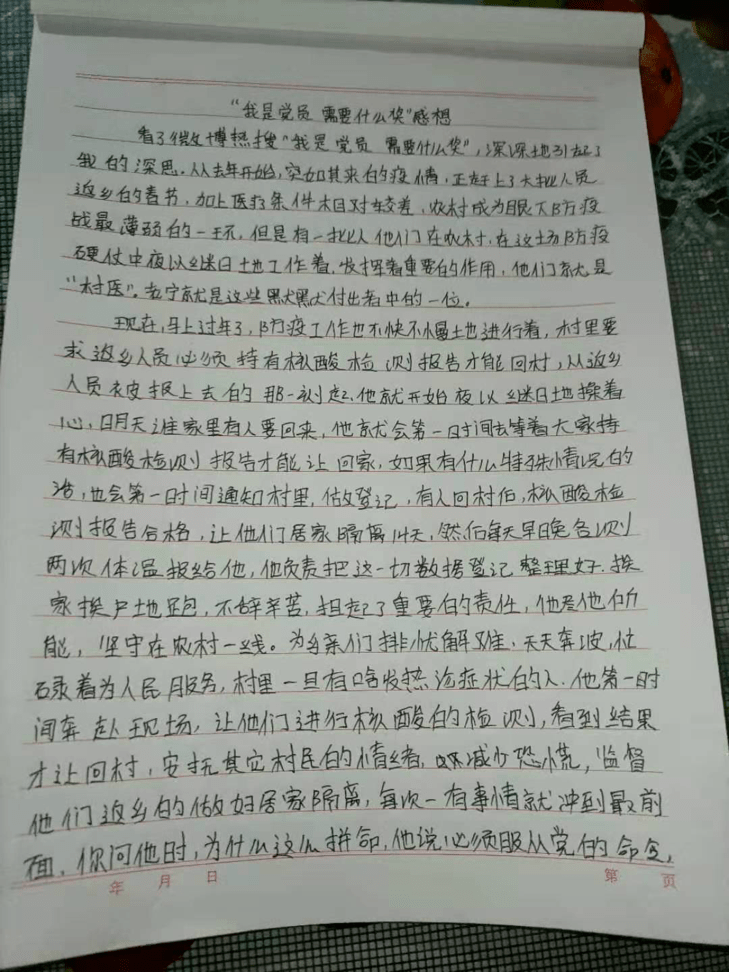 “我是党员 需要什么奖”感想
看了微博热搜“我是党员 需要什么奖”,深深地引起了
我的深思。从去年开始,突如其来的疫情,正赶上了大批人员
返乡的春节,加上医疗条件相对较差,农村成为眼下防疫
战最薄弱的一环,但是有一批人他们在农村,在这场防疫
硬仗中夜以继日地工作着,发挥着重要的作用,他们就是
“村医”。宁就是这些默默付出者中的一位。
现在,马上过年了,防疫工作也不快不慢地进行着,村里要
求返乡人员必须持有核酸检测报告才能回村,从返乡
人员被报上去的那一刻起,他就开始夜以继日地操着
心,明天谁家里有人要回来,他就会第一时间去等着大家持
有核酸检测报告才能让回家,如果有什么特殊情况的
治,也会第一时间通知村里,做登记,有人回村后,核酸检
测报告合格,让他们居家隔离14天,然后每天早晚各测
两次体温报给他,他负责把这一切数据登记整理好.挨
家挨户地跑,不辞辛苦,担起了重要的责任,他尽他所
能,坚守在农村一线。为乡亲们排忧解难,天天奔波,忙
碌着为人民服务,村里一旦有啥发热症状的人.他第一时
间奔赴现场,让他们进行核酸的检测,看到结果
才让回村,安抚其它村民的情绪,减少恐慌,监督
他们返乡的做好居家隔离,每次一有事情就冲到最前
面,你问他时,为什么这么拼命,他说必须服从党的命令,
年 月 日 第 页